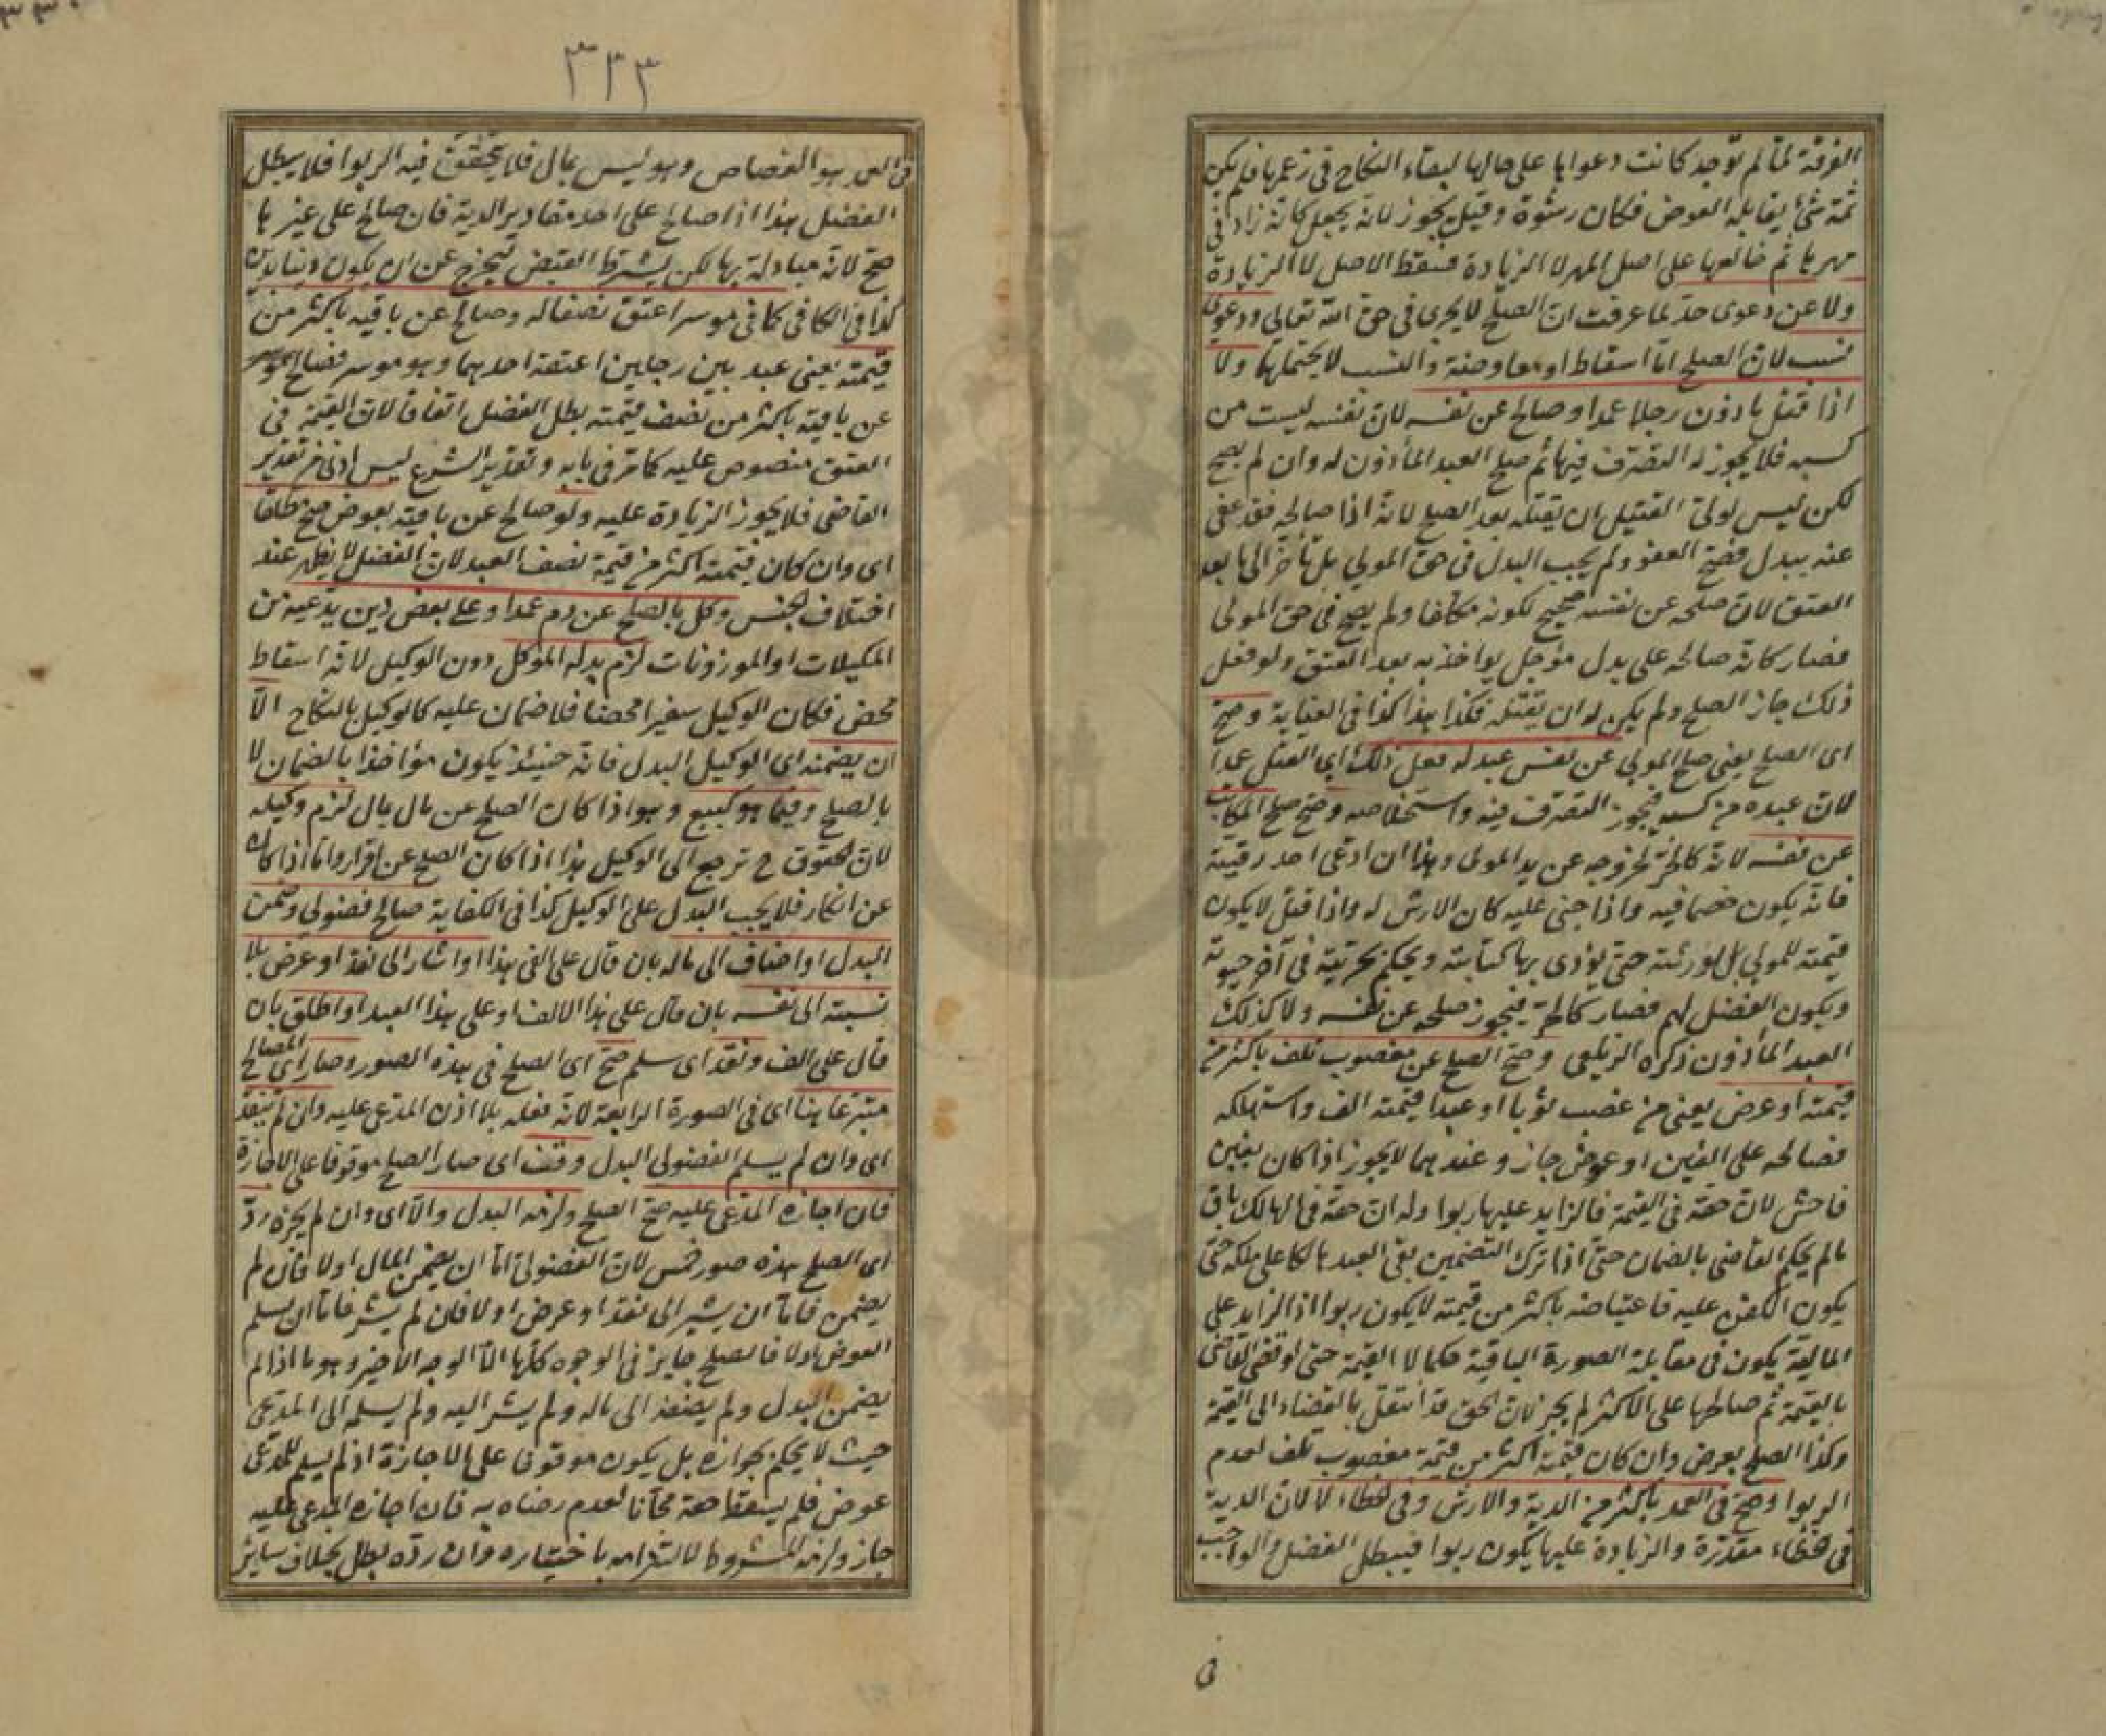 الفرقة لما لم توجد كانت دعواها على حالها لبقاء النكاح فى زعمها فلم يكن
ثمة شئ يقابله العوض فكان رشوة وقيل يجوز لانه يجعل كانه زاد فى
مهرها ثم خالعها على اصل المهر لا الزيادة فسقط الاصل لا الزيادة
ولا عن دعوى حد لما عرفت ان الصلح لا يجرى فى حق الله تعالى ودعوى
نسب لان الصلح اما اسقاط او معاوضة والنسب لا يحتملهما ولا
اذا قتل ماذون رجلا عمدا وصالح عن نفسه لان نفسه ليست من
كسبه فلا يجوز له التصرف فيها ثم صلح العبد المأذون له وان لم يصح
لكن ليس لولى القتيل ان يقتله بعد الصلح لانه اذا صالحه فقد عفى
عنه ببدل فصح العفو ولم يجب البدل فى حق المولى بل تأخر الى ما بعد
العتق لان صلحه عن نفسه صحيح لكونه مكلفا ولم يصح فى حق المولى
فصار كانه صالحه على بدل مؤجل يواخذ به بعد العتق ولو فعل
ذلك جاز الصلح ولم يكن له ان يقتله فكذا هذا كذا فى العناية وصح
اى الصلح يعنى صلح المولى عن نفس عبد له فعل ذلك اى القتل عمدا
لان عبده من كسبه فيجوز التصرف فيه واستخلاصه وصح صلح المكاتب
عن نفسه لانه كالحر لخروجه عن يد المولى ولهذا ان ادعى احد رقبته
فانه يكون خصما فيه واذا جنى عليه كان الارش له واذا قتل لا يكون
قيمته للمولى بل لورثته حتى يؤدى بها كتابته ويحكم بحريته فى آخر حيوته
ويكون الفضل لهم فصار كالحر فيجوز صلحه عن نفسه ولا كذلك
العبد المأذون ذكره الزيلعى وصح الصلح عن مغصوب تلف باكثر من
قيمته او عرض يعنى من غصب ثوبا او عبدا قيمته الف واستهلكه
فصالحه على الفين او عرض جاز وعندهما لا يجوز اذا كان بغبن
فاحش لان حقه فى القيمة فالزايد عليها ربوا وله ان حقه فى الهالك باق
ما لم يحكم القاضى بالضمان حتى اذا ترك التضمين بقى العبد هالكا على ملكه حتى
يكون الكفن عليه فاعتياضه باكثر من قيمته لا يكون ربوا اذ الزايد على
المالية يكون فى مقابلة الصورة الباقية حكما لا القيمة حتى لو قضى القاضى
بالقيمة ثم صالحها على الاكثر لم يجز لان الحق قد انتقل بالقضاء الى القيمة
وكذا الصلح بعرض وان كان قيمته اكثر من قيمة مغصوب تلف لعدم
الربوا وصح فى العمد باكثر من الدية والارش وفى الخطاء لا لان الدية
فى الخطاء مقدرة والزيادة عليها يكون ربوا فيبطل الفضل والواجب
فى
٣٢٣
فى العمد هو القصاص وهو ليس بمال فلا يتحقق فيه الربوا فلا يبطل
الفضل هذا اذا صالح على احد مقادير الدية فان صالح على غيرها
صح لانه مبادلة بها لكن يشترط القبض ليخرج عن ان يكون دينا بدين
كذا فى الكافى كما فى موسر اعتق نصفا له وصالح عن باقيه باكثر من
قيمته يعنى عبد بين رجلين اعتقه احدهما وهو موسر فصالح الموسر
عن باقيه باكثر من نصف قيمته بطل الفضل اتفاقا لان القيمة فى
العتق منصوص عليه كما مر فى بابه وتقدير الشرع ليس ادنى من تقدير
القاضى فلا يجوز الزيادة عليه ولو صالح عن باقيه بعوض صح مطلقا
اى وان كان قيمته اكثر من قيمة نصف العبد لان الفضل لا يظهر عند
اختلاف الجنس وكل بالصلح عن دم عمدا وعلى بعض دين يدعيه من
المكيلات او الموزونات لزم بدله الموكل دون الوكيل لانه اسقاط
محض فكان الوكيل سفيرا محضا فلا ضمان عليه كالوكيل بالنكاح الا
ان يضمنه اى الوكيل البدل فانه حينئذ يكون مؤاخذا بالضمان لا
بالصلح وفيما هو كبيع وهو اذا كان الصلح عن مال بمال لزم وكيله
لان الحقوق ح ترجع الى الوكيل هذا اذا كان الصلح عن اقرار واما اذا كان
عن انكار فلا يجب البدل على الوكيل كذا فى الكفاية صالح فضولى وضمن
البدل او اضاف الى ماله بان قال على الفى هذا او اشار الى نقد او عرض بلا
نسبته الى نفسه بان قال على هذا الالف او على هذا العبد او اطلق بان
قال على الف ونقد اى سلم صح اى الصلح فى هذه الصور وصار اى المصالح
متبرعا هنا اى فى الصورة الرابعة لانه فعله بلا اذن المدعى عليه وان لم ينقد
اى وان لم يسلم الفضولى البدل وقف اى صار الصلح موقوفا على الاجازة
فان اجازه المدعى عليه صح الصلح ولزمه البدل والا اى وان لم يجزه رد
اى الصلح هذه صور خمس لان الفضولى اما ان يضمن المال او لا فان لم
يضمن فاما ان يشير الى نقد او عرض او لا فان لم يشر فاما ان يسلم
العوض او لا فالصلح جايز فى الوجوه كلها الا الوجه الاخير وهو ما اذا لم
يضمن البدل ولم يضفه الى ماله ولم يشر اليه ولم يسلمه الى المدعى
حيث لا يحكم بجوازه بل يكون موقوفا على الاجازة اذ لم يسلم للمدعى
عوض فلم يسقط حقه مجانا لعدم رضاه به فان اجازه المدعى عليه
جاز ولزمه المشروط لالتزامه باختياره وان رده بطل بخلاف ساير